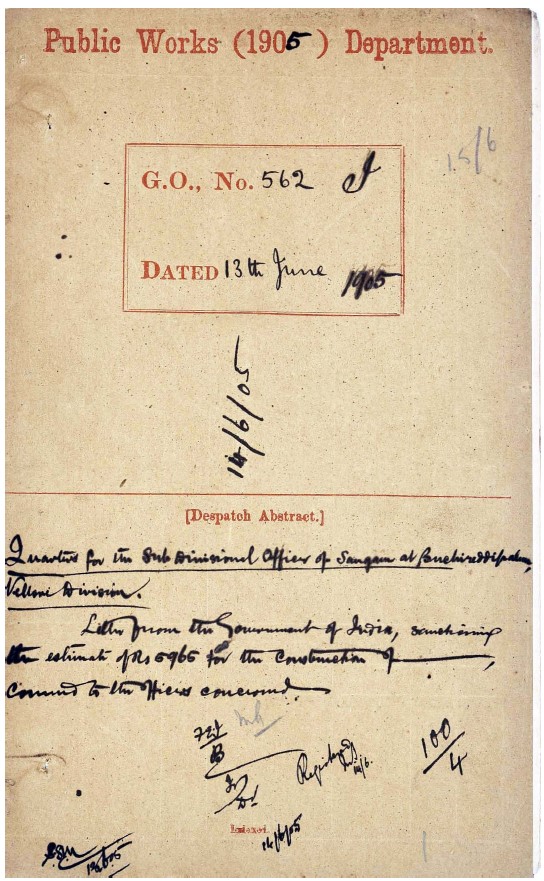 Public Works (1905) Department.
15/6
G.O., No. 562 I
DATED 13th June 1905
14/6/05
[Despatch Abstract.]
Quarters for the Sub Divisional Officer of Sangam at
Nellore Division.
Letter from the Government of India, sanctioning
the estimate of Rs 5965 for the construction of ———,
commd to the officers concerned
Registered
14/6.
100/4
Indexed.
14/6/05